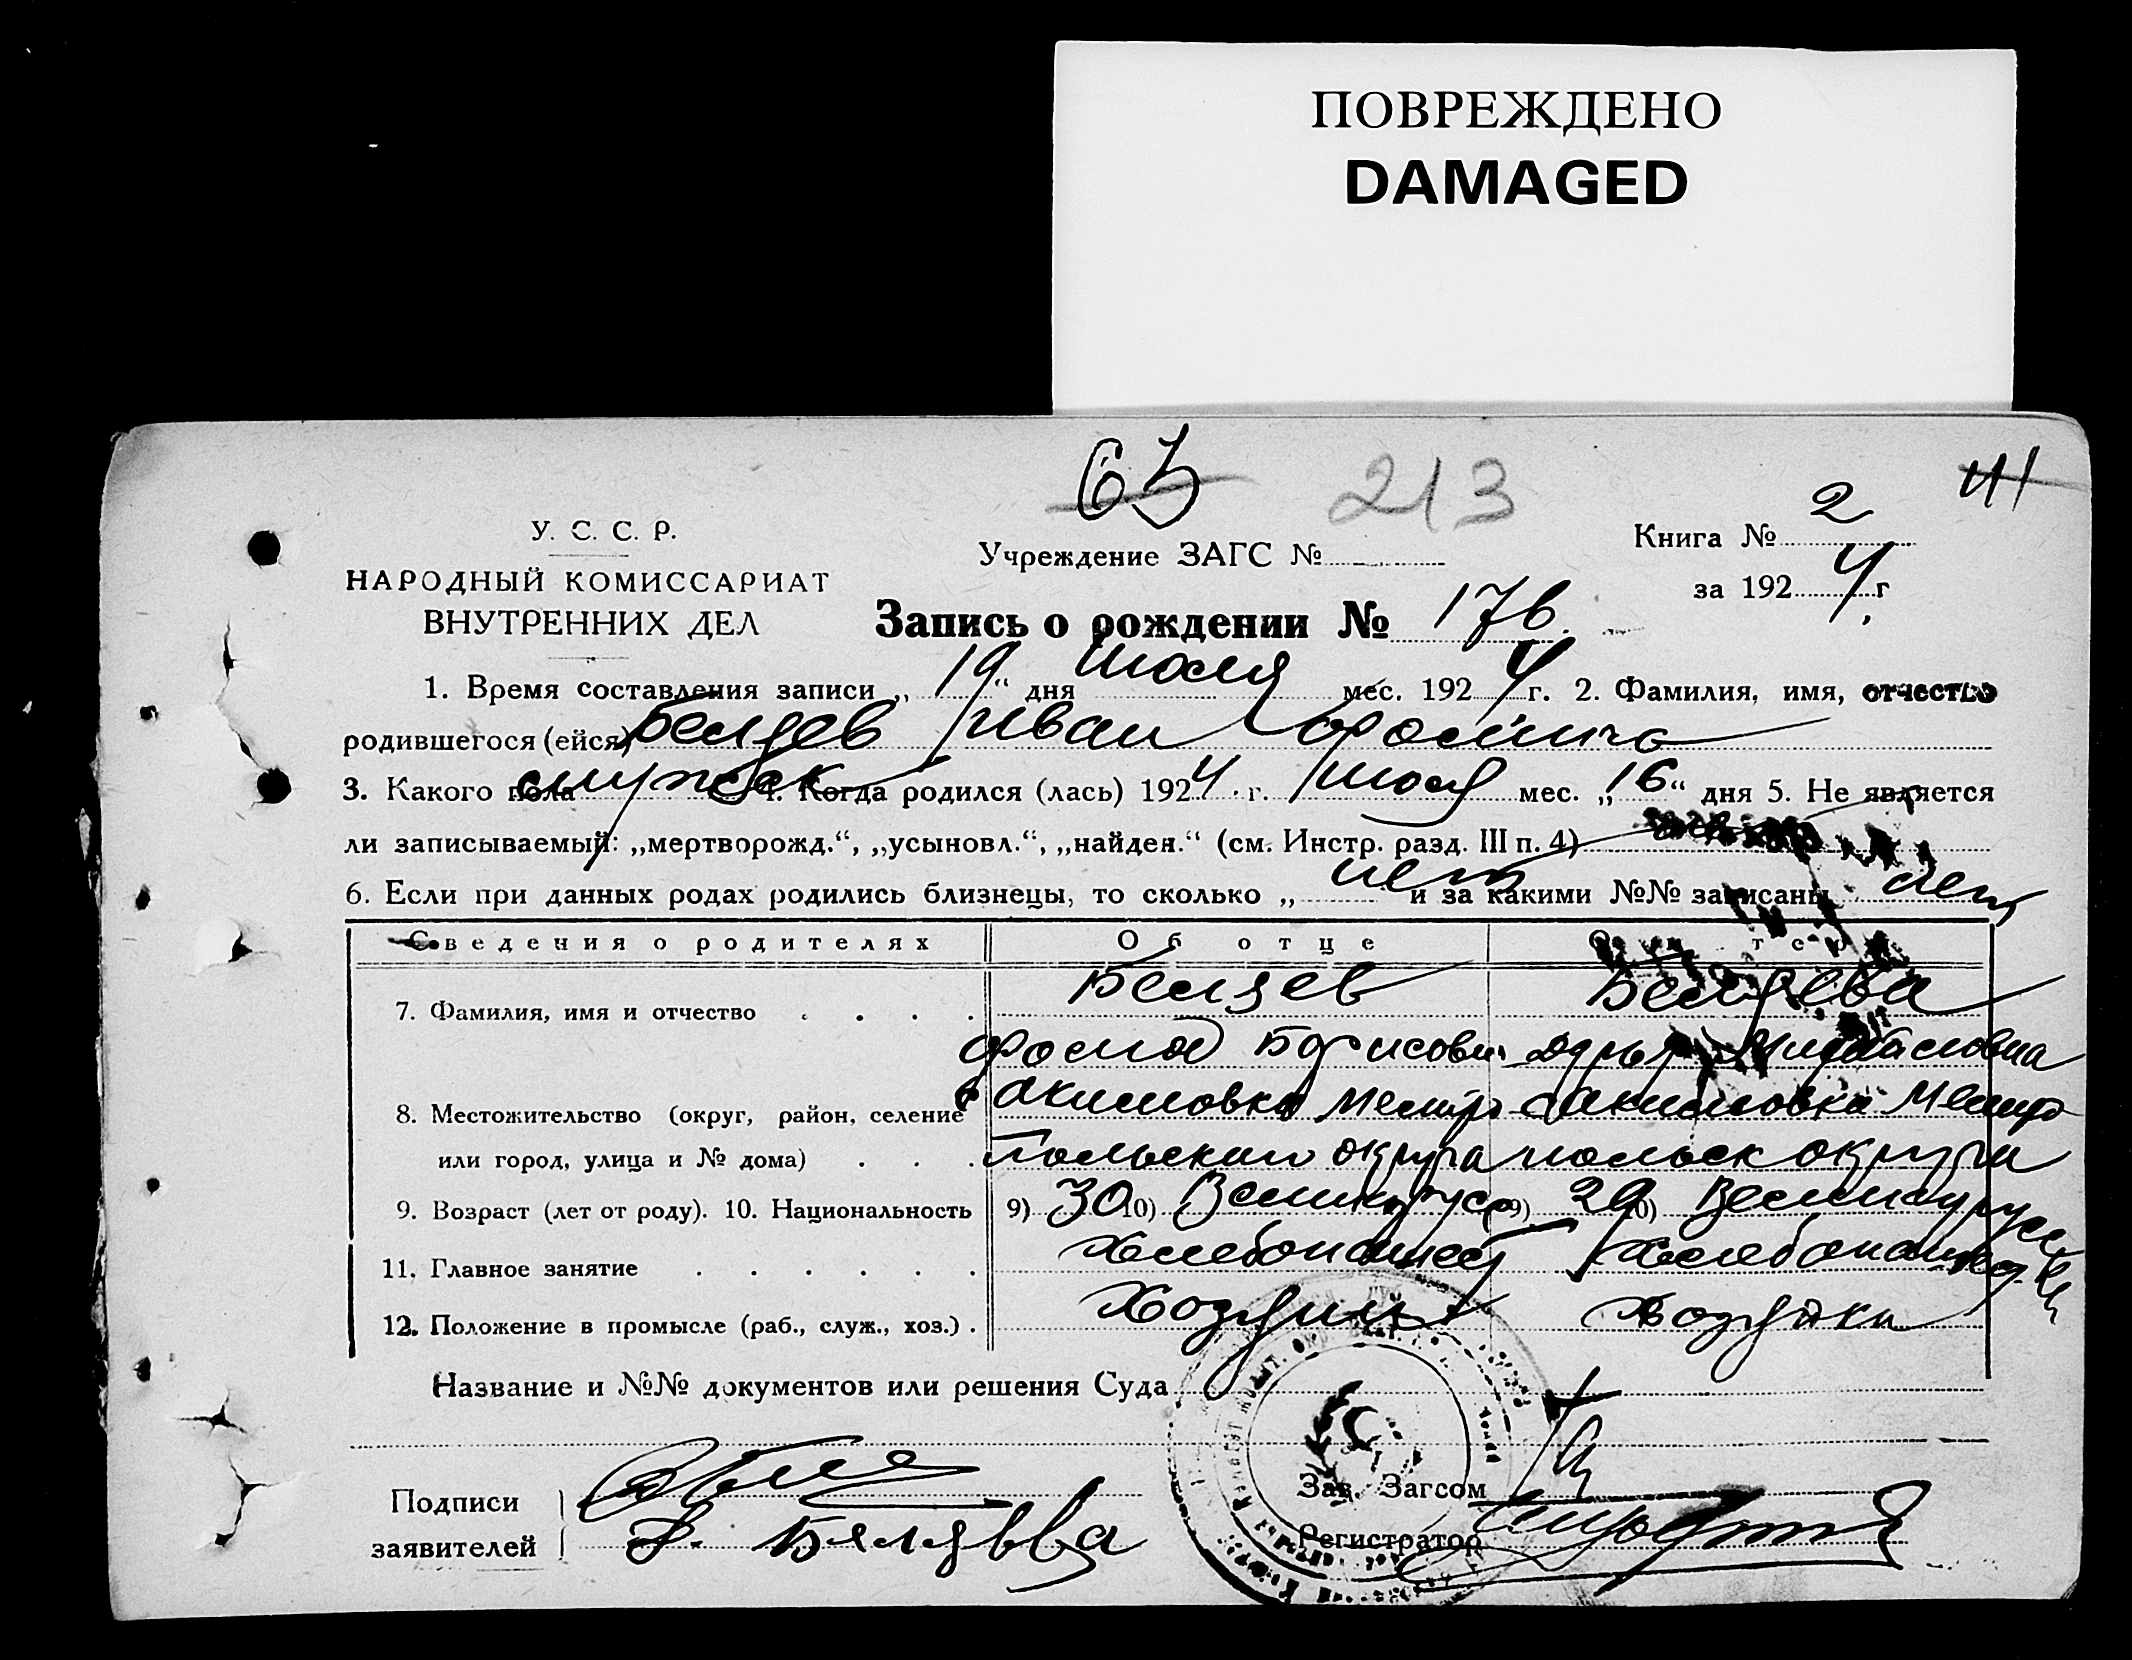 ПОВРЕЖДЕНО
DAMAGED
63 213
У. С. С. Р.
НАРОДНЫЙ КОМИССАРИАТ
ВНУТРЕННИХ ДЕЛ
Учреждение ЗАГС №
Книга № 2
за 1924 г.
Запись о рождении № 176
1. Время составления записи „ 19 “ дня Июля мес. 1924 г. 2. Фамилия, имя, отчество
родившегося (ейся) Беляев Иван Фомич
3. Какого пола мужск 4. Когда родился (лась) 1924 г. Июля мес. „ 16 “ дня 5. Не является
ли записываемый: „мертворожд.“, „усыновл.“, „найден.“ (см. Инстр. разд. III п. 4)
6. Если при данных родах родились близнецы, то сколько „ нет и за какими №№ записаны нет
Сведения о родителях Об отце О матери
7. Фамилия, имя и отчество Беляев Беляева
Фома Борисович Дарья
8. Местожительство (округ, район, селение Акимовка Мелито Акимовка Мелито
или город, улица и № дома) польскаго округа польск округа
9. Возраст (лет от роду). 10. Национальность 9) 30 10) Великорус 9) 29 10) Великорусск
11. Главное занятие Хлебопашец Хлебопаш
12. Положение в промысле (раб., служ., хоз.) Хозяин Хозяйка
Название и №№ документов или решения Суда
Подписи
заявителей
Беляева
Зав. Загсом
Регистратор